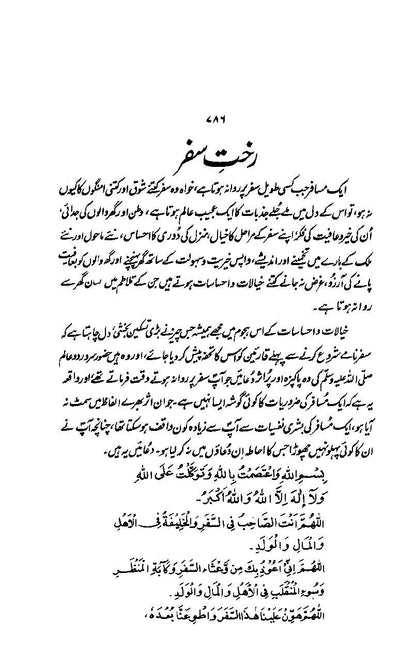 ۷۸۶
رختِ سفر
ایک مسافر جب کسی طویل سفر پر روانہ ہوتا ہے، خواہ وہ سفر کتنے شوق اور کتنی امنگوں کا کیوں
نہ ہو، تو اس کے دل میں ملے جلے جذبات کا ایک عجیب عالم ہوتا ہے، وطن اور گھر والوں کی جدائی،
اُن کی خیر و عافیت کی فکر، اپنے سفر کے مراحل کا خیال، منزل کی دُوری کا احساس، نئے ماحول اور نئے
ملک کے بارے میں تخمینے اور اندیشے، واپس خیریت و سہولت کے ساتھ گھر پہنچنے اور گھر والوں کو بعافیت
پانے کی آرزو، غرض نہ جانے کتنے خیالات و احساسات ہوتے ہیں جن کے تلاطم میں انسان گھر سے
روانہ ہوتا ہے۔
خیالات و احساسات کے اس ہجوم میں مجھے ہمیشہ جس چیز نے بڑی تسکین بخشی، دل چاہتا ہے کہ
سفرنامے شروع کرنے سے پہلے قارئین کو اس کا تحفہ پیش کر دیا جائے، اور وہ ہیں حضور سرور دو عالم
صلی اللہ علیہ وسلم کی وہ پاکیزہ اور پُر اثر دعائیں جو آپؐ سفر پر روانہ ہوتے وقت فرماتے تھے، اور واقعہ
یہ ہے کہ ایک مسافر کی ضروریات کا کوئی گوشہ ایسا نہیں ہے۔ جو ان اثر بھرے الفاظ میں سمٹ نہ
آیا ہو، ایک مسافر کی بشری نفسیات سے آپؐ سے زیادہ کون واقف ہو سکتا تھا، چنانچہ آپؐ نے
ان کا کوئی پہلو نہیں چھوڑا جس کا احاطہ ان دُعاؤں میں نہ کر لیا ہو۔ دعائیں یہ ہیں۔
بِسْمِ اللهِ وَاعْتَصَمْتُ بِاللهِ وَتَوَكَّلْتُ عَلَى اللهِ
وَلَا إِلٰهَ إِلَّا اللهُ وَاللهُ أَكْبَرُ۔
اَللّٰهُمَّ أَنْتَ الصَّاحِبُ فِي السَّفَرِ وَالْخَلِيفَةُ فِي الْأَهْلِ
وَالْمَالِ وَالْوَلَدِ۔
اَللّٰهُمَّ إِنِّي أَعُوذُ بِكَ مِنْ وَعْثَاءِ السَّفَرِ وَكَآبَةِ الْمَنْظَرِ
وَسُوءِ الْمُنْقَلَبِ فِي الْأَهْلِ وَالْمَالِ وَالْوَلَدِ۔
اَللّٰهُمَّ هَوِّنْ عَلَيْنَا هٰذَا السَّفَرَ وَاطْوِ عَنَّا بُعْدَهُ،